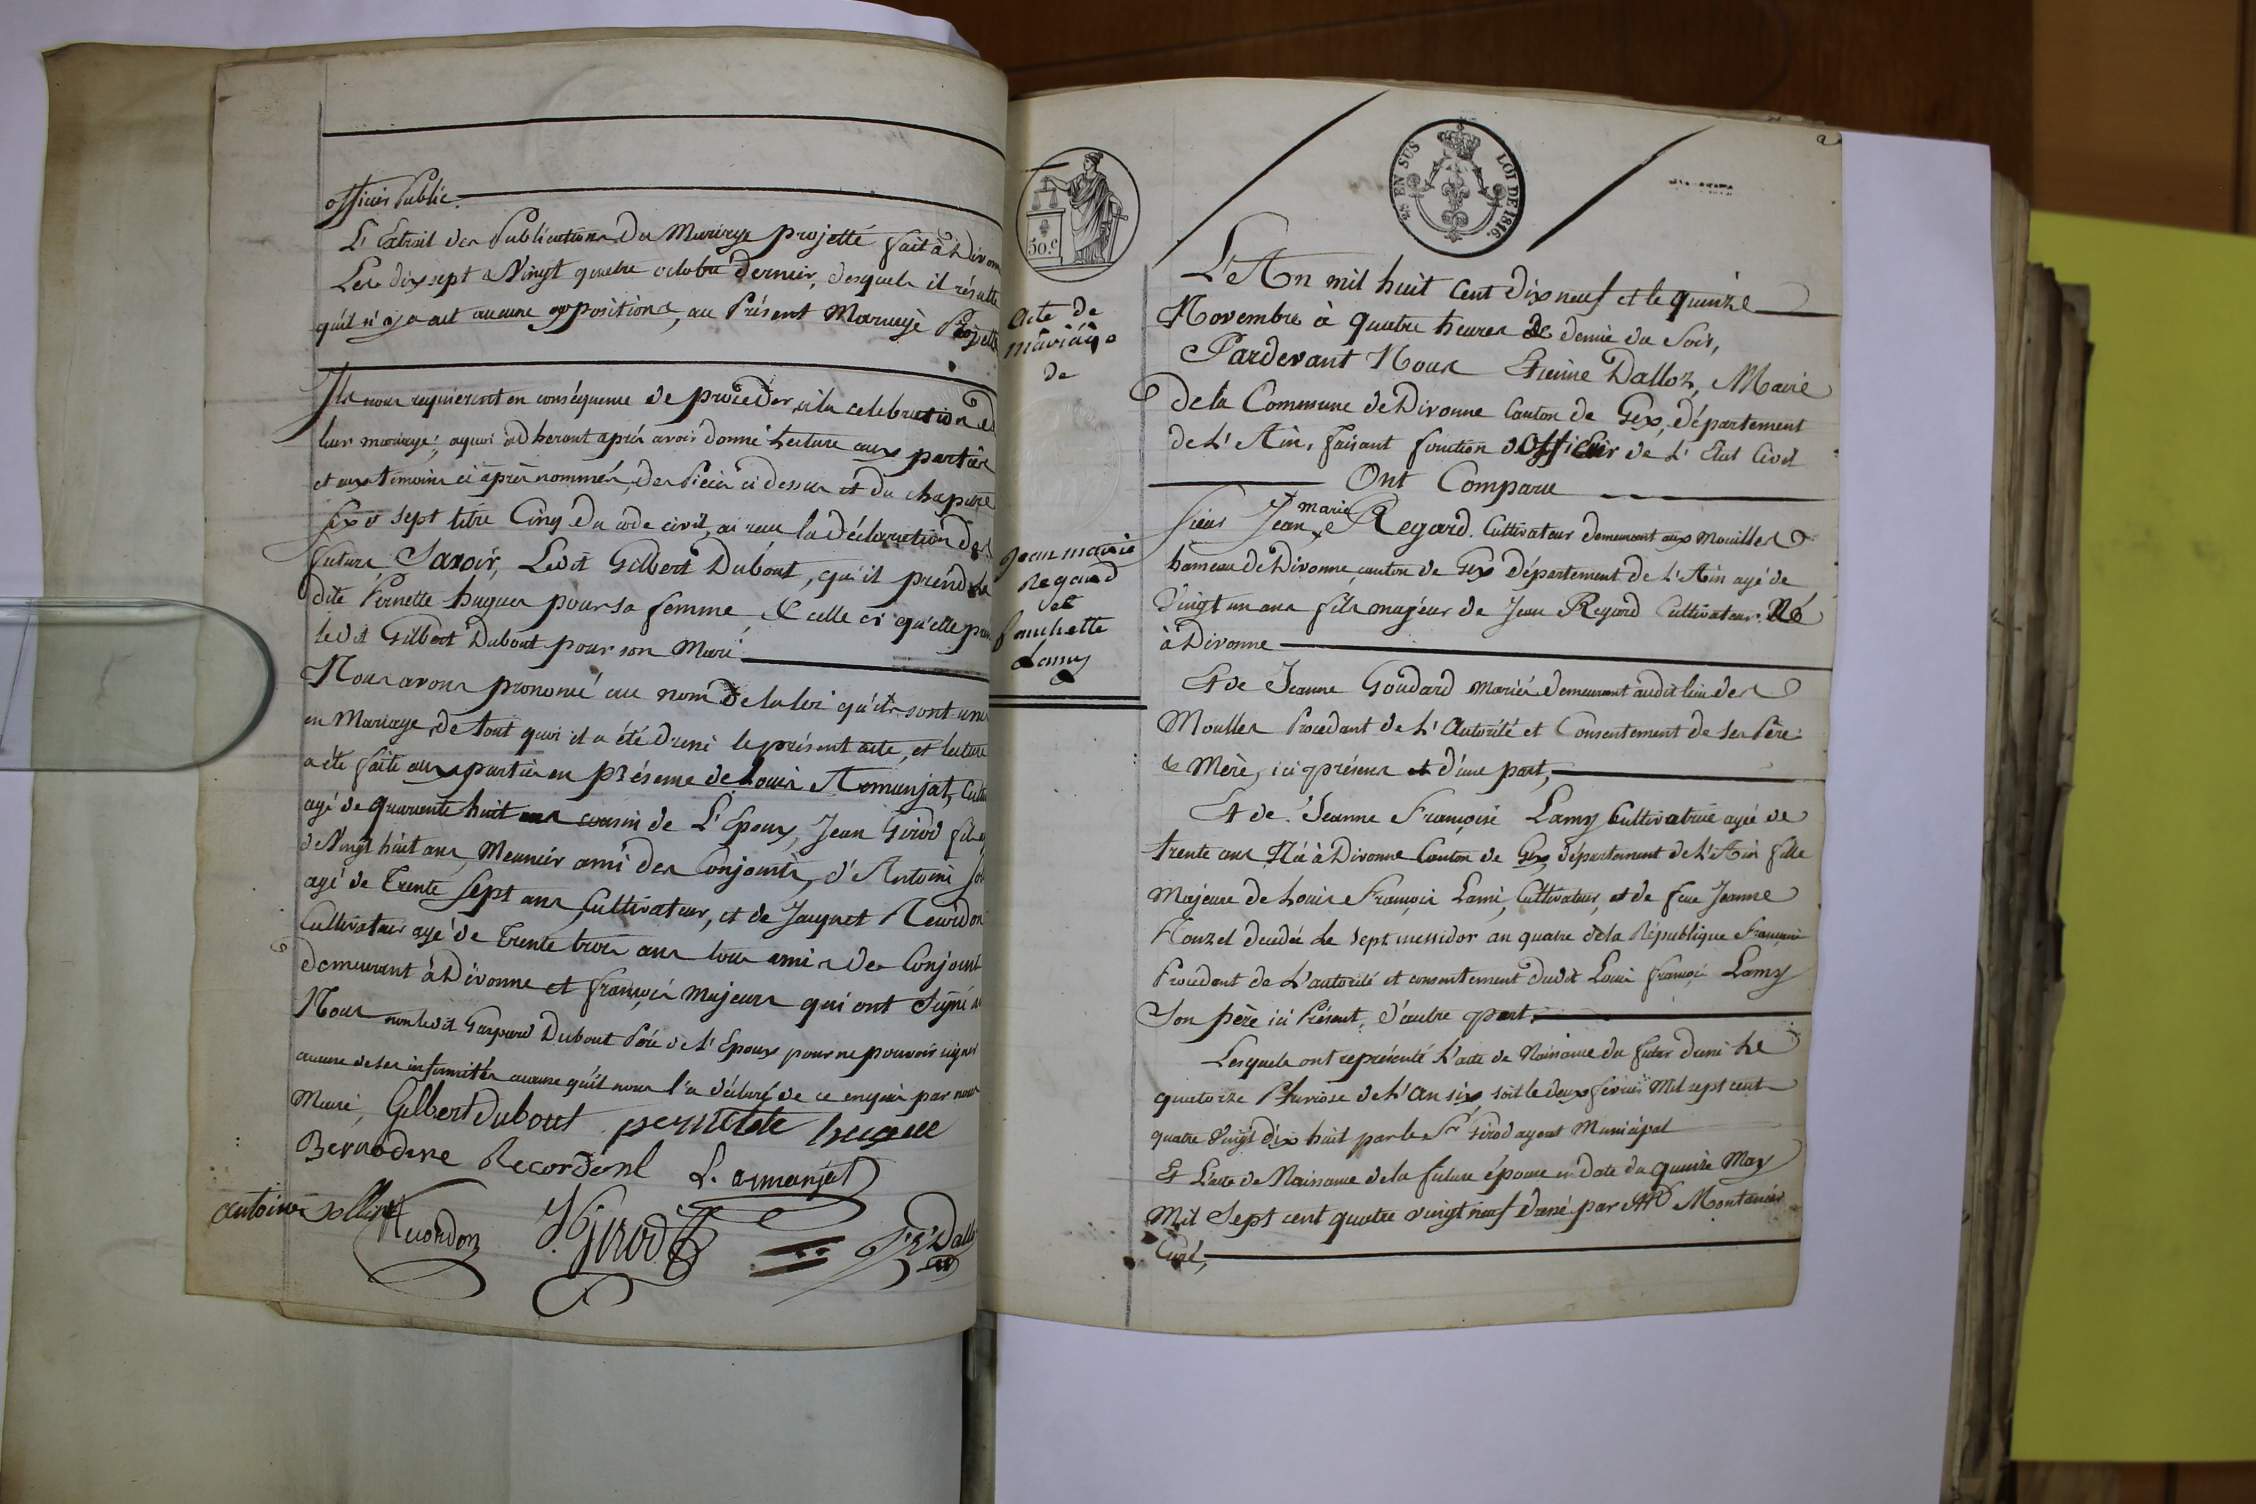 officier Public.
L'Extrait des Publications du Mariage projetté fait à Divonne
Les dix sept & Vingt quatre octobre dernier, desquels il résulte
qu'il n'y a eut aucune oppositions, au Présent Mariage Projetté
Ils nous requierent en conséquence de procéder à la celebration de
leur mariage; aquoi adherant après avoir donné Lecture aux parties
et aux temoins ci après nommés, des Pièces ci dessus et du chapitre
six & sept titre Cinq du code civil, ai reçu la Déclaration des
futurs Savoir, Ledit Gilbert Dubout, qu'il prend la
dite Pernette hugues pour sa femme, & celle ci qu'elle prend
ledit Gilbert Dubout pour son Mari
Nous avons prononcé au nom de la loi qu'ils sont unis
en Mariage, de tout quoi il a été Dressé le présent acte, et lecture
a été faite aux parties en présence de Louis Armanjat, Cultiv
agé de quarante huit ans cousin de L'Epoux, Jean Girod fils
de Vingt huit ans, Meunier ami des Conjoints, d'Antoine
agé de Trente Sept ans Cultivateur, et de Jaquet Recordon
Cultivateur agé de Trente trois ans tous amis des Conjoints
demeurant à Divonne et françois Majeurs qui ont Signé
Nous non ledit Gaspard Dubout Père de L'Epoux pour ne pouvoir signer
acause de ses infirmités acause qu'il nous l'a déclaré de ce enquis par nous
Maire, Gilbert dubout pernette hugue
Bernadine Recordonl L. armanjat
antoine Sollier Recordon J. Girod Dalloz
50.c
25 EN SUS LOI DE 1816.
Acte de
mariage
de
Jean marie
Regard
et
fanchette
Lamy
L'An mil huit Cent Dix neuf et le quinze
Novembre à quatre heures & demie du Soir,
Pardevant Nous Etienne Dalloz, Maire
de la Commune de Divonne Canton de Gex, département
de L'Ain, faisant fonction d'Officier de L'Etat Civil
Ont Comparu
Sieur Jean marie Regard Cultivateur demeurant aux Mouilles
hameau de Divonne, canton de Gex Département de L'Ain agé de
Vingt un ans fils majeur de Jean Regard Cultivateur Né
à Divonne
Et de Jeanne Goudard Mariés demeurant audit lieu des
Moulles Procedant de L'Autorité et Consentement de ses Père
& Mère, ici présens et d'une part,
Et de Jeanne Françoise Lamy Cultivatrice agée de
trente ans Née à Divonne Canton de Gex, département de L'Ain fille
Majeure de Louis François Lami, Cultivateur, et de feue Jeanne
Flouzet decedée Le Sept messidor an quatre de la République Française
Procedant de L'autorité et consentement dudit Louis françois Lamy
Son père ici Présent, D'autre part.
Lesquels ont représenté L'acte de Naissance du futur Dressé Le
quatorze Pluviose de L'an six soit le deux fevrier Mil sept cent
quatre Vingt dix huit par le Sr Girod agent Municipal
Et L'acte de Naissance de la future épouse en date du quinze May
Mil Sept cent quatre vingt neuf Dressé par Rd Montanier
Curé,